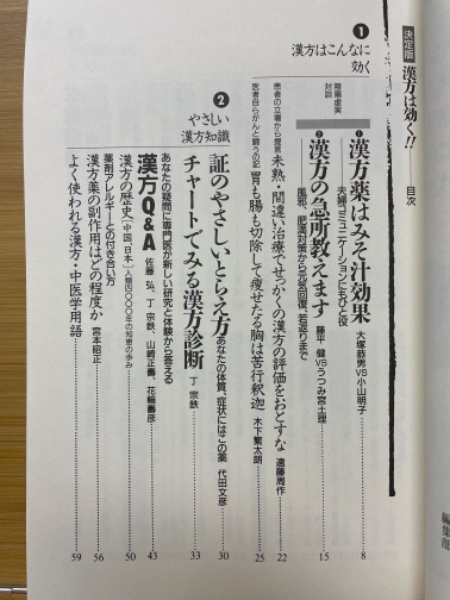 決定版 漢方は効く!! 目次
❶
漢方はこんなに
効く
陰陽虚実
対談
❶ 漢方薬はみそ汁効果 大塚恭男VS小山明子 8
夫婦コミュニケーションにもひと役
❷ 漢方の急所教えます 藤平 健VSうつみ宮土理 15
風邪、肥満対策から元気回復、若返りまで
患者の立場から提言 未熟・間違い治療でせっかくの漢方の評価をおとすな 遠藤周作 22
医者自らがんと闘うの記 胃も腸も切除して痩せたる胸は苦行釈迦 木下繁太朗 25
❷
やさしい
漢方知識
証のやさしいとらえ方 あなたの体質、症状にはこの薬 代田文彦 30
チャートでみる漢方診断 丁 宗鉄 33
あなたの疑問に専門医が新しい研究と体験から答える
漢方Q&A 佐藤 弘、丁 宗鉄、山崎正壽、花輪壽彦 43
漢方の歴史［中国、日本］人間四〇〇〇年の知恵の歩み 50
薬剤アレルギーとの付き合い方
漢方薬の副作用はどの程度か 宮本昭正 56
よく使われる漢方・中医学用語 59
編集部